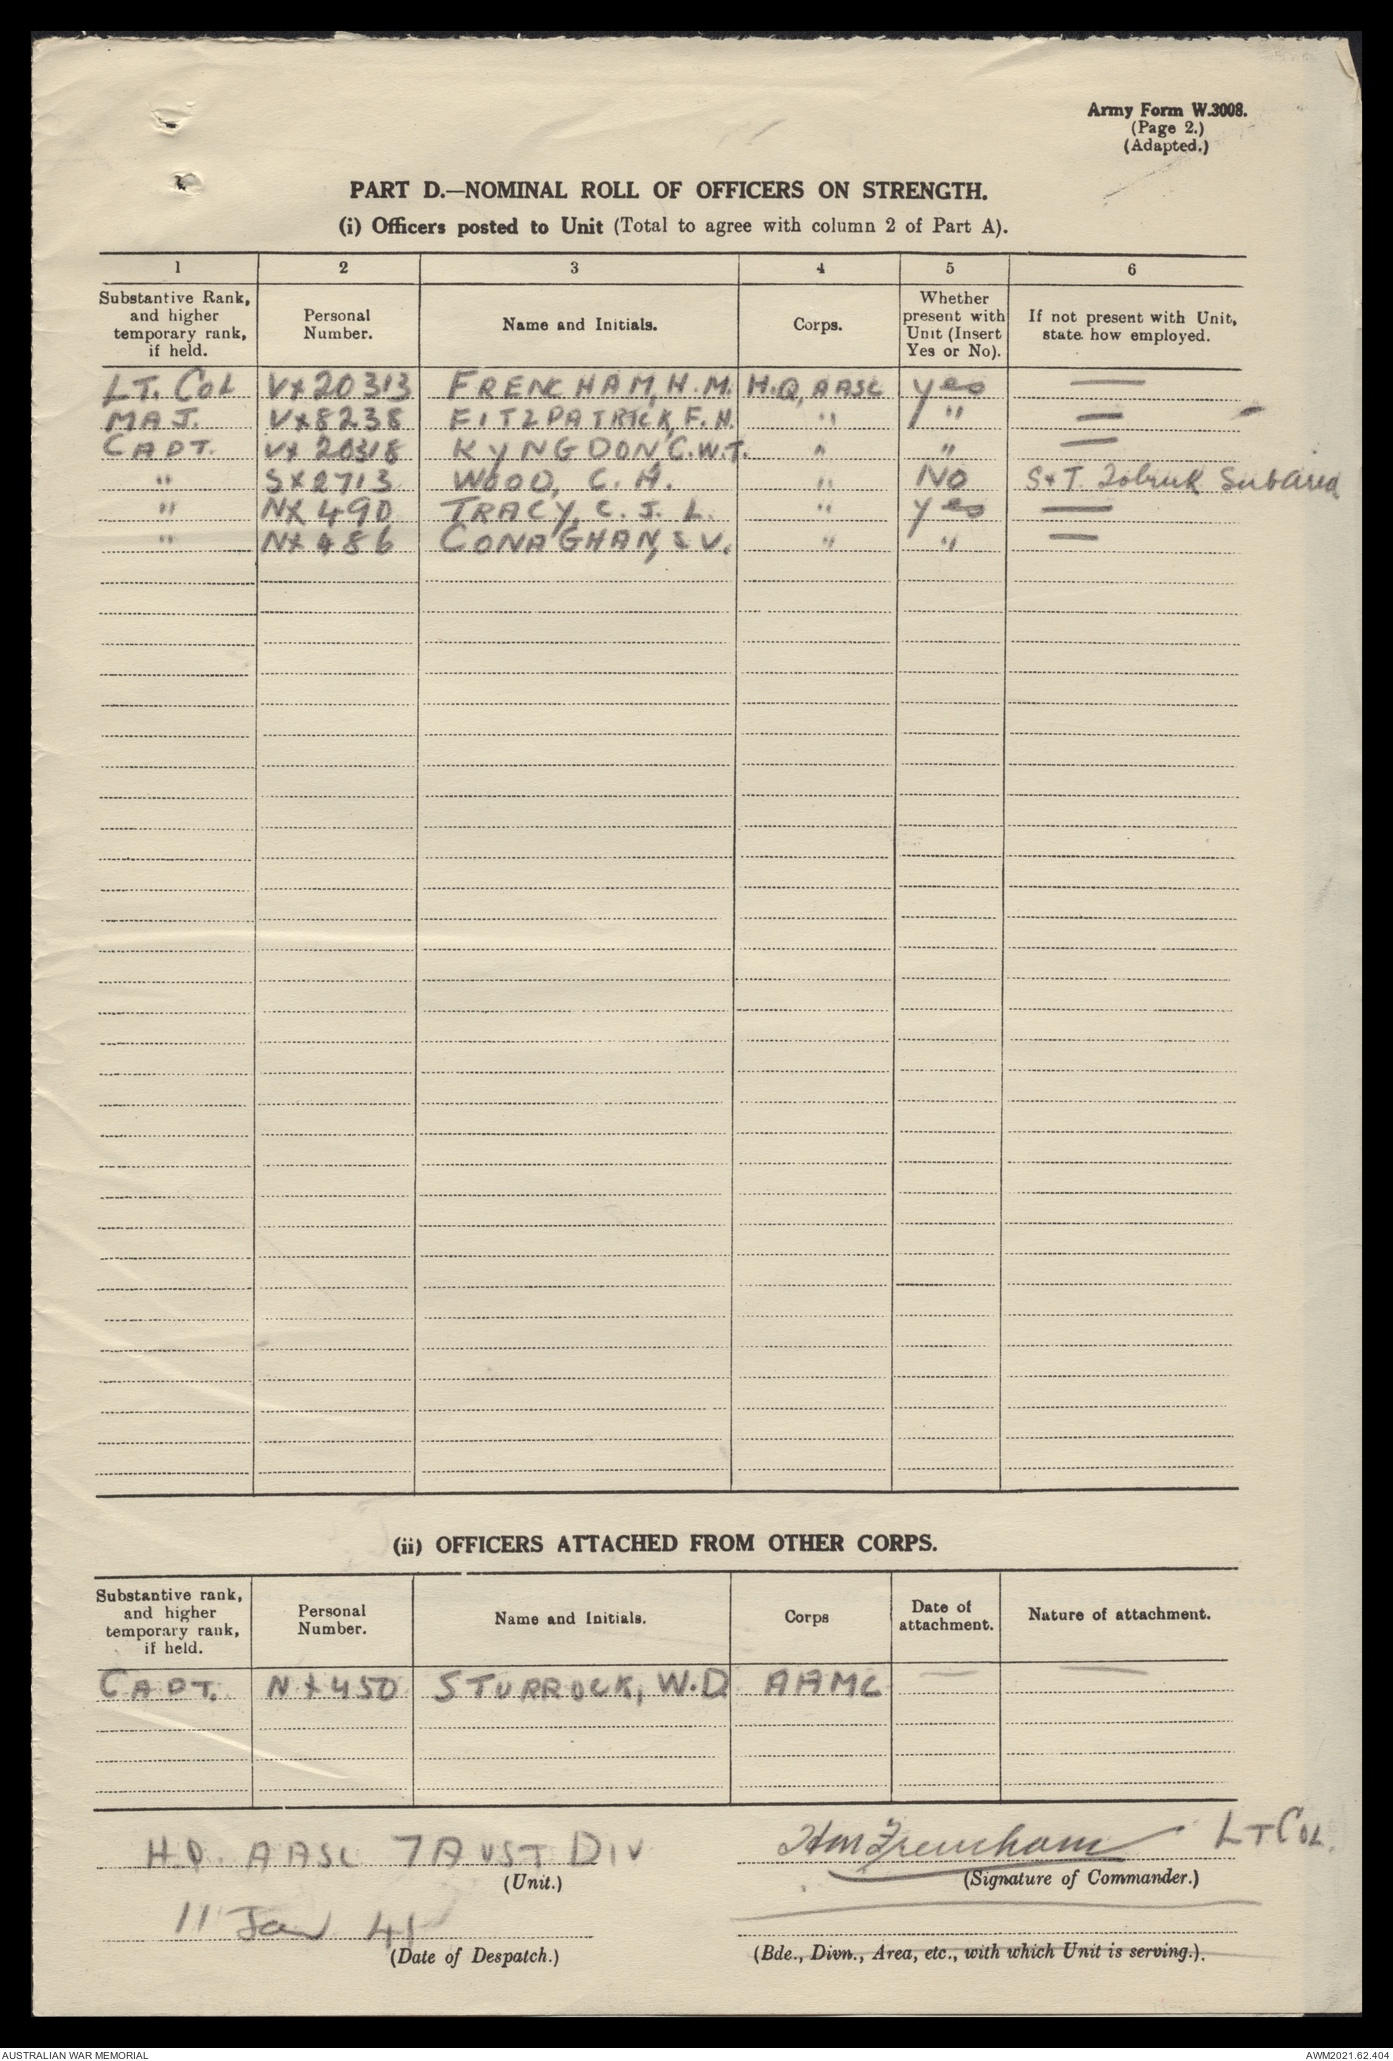 Army Form W.3008.
(Page 2.)
(Adapted.)
PART D.—NOMINAL ROLL OF OFFICERS ON STRENGTH.
(i) Officers posted to Unit (Total to agree with column 2 of Part A).
1 2 3 4 5 6
Substantive Rank, and higher temporary rank, if held. Personal Number. Name and Initials. Corps. Whether present with Unit (Insert Yes or No). If not present with Unit, state how employed.
LT. COL VX20313 FRENCHAM, H.M. H.Q, AASC yes —
MAJ. VX8238 FITZPATRICK, F.H. " " —
CAPT. VX20318 KYNGDON, C.W.T. " " —
" SX2713 WOOD, C. H. " No S&T. Tobruk Subarea
" NX490 TRACY, C. J. L. " yes —
" NX486 CONAGHAN, S V. " " —
(ii) OFFICERS ATTACHED FROM OTHER CORPS.
Substantive rank, and higher temporary rank, if held. Personal Number. Name and Initials. Corps Date of attachment. Nature of attachment.
CAPT. NX450 STURROCK, W.D AAMC — —
H.Q. AASC 7 AUST DIV
(Unit.)
HMFrencham LT COL.
(Signature of Commander.)
11 Jan 41
(Date of Despatch.)
(Bde., Divn., Area, etc., with which Unit is serving.).
AUSTRALIAN WAR MEMORIAL
AWM2021.62.404